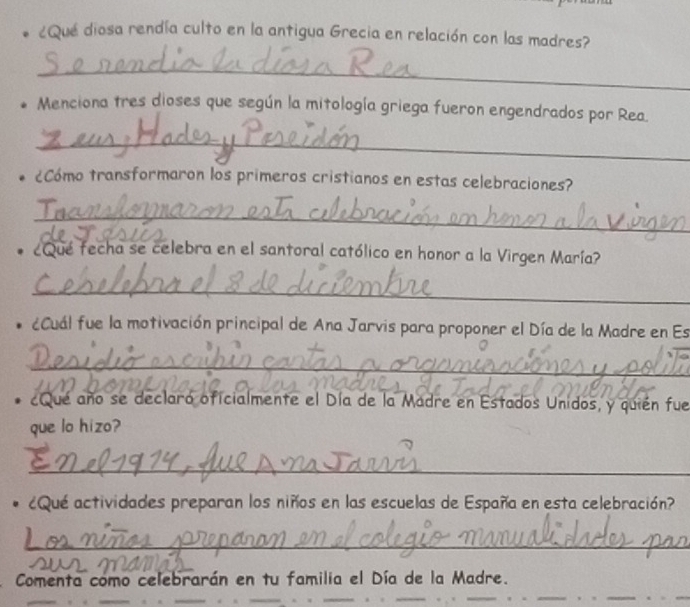 • ¿Qué diosa rendía culto en la antigua Grecia en relación con las madres?
Se rendia la diosa Rea
• Menciona tres dioses que según la mitología griega fueron engendrados por Rea.
Zeus, Hades y Poseidón
• ¿Cómo transformaron los primeros cristianos en estas celebraciones?
Transformaron esta celebración en honor a la virgen
de Jesús
• ¿Qué fecha se celebra en el santoral católico en honor a la Virgen María?
Celebra el 8 de diciembre
• ¿Cuál fue la motivación principal de Ana Jarvis para proponer el Día de la Madre en Es
Desidió escribir cartas a organizaciones y polit
un homenaje a las madres de Todo el mundo
• ¿Qué año se declaró oficialmente el Día de la Madre en Estados Unidos, y quién fue
que lo hizo?
En el 1914, fue Ana Jarvis
• ¿Qué actividades preparan los niños en las escuelas de España en esta celebración?
Los niños preparan en el colegio manualidades par
sus mamás
Comenta como celebrarán en tu familia el Día de la Madre.